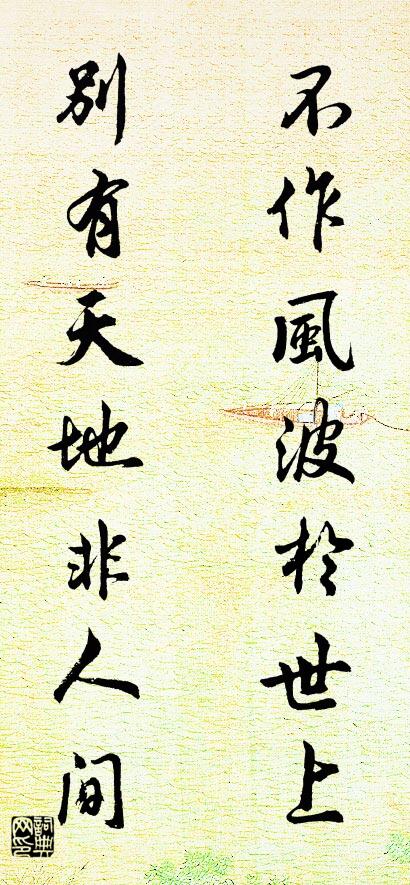 不作風波於世上
別有天地非人间
詞典网印